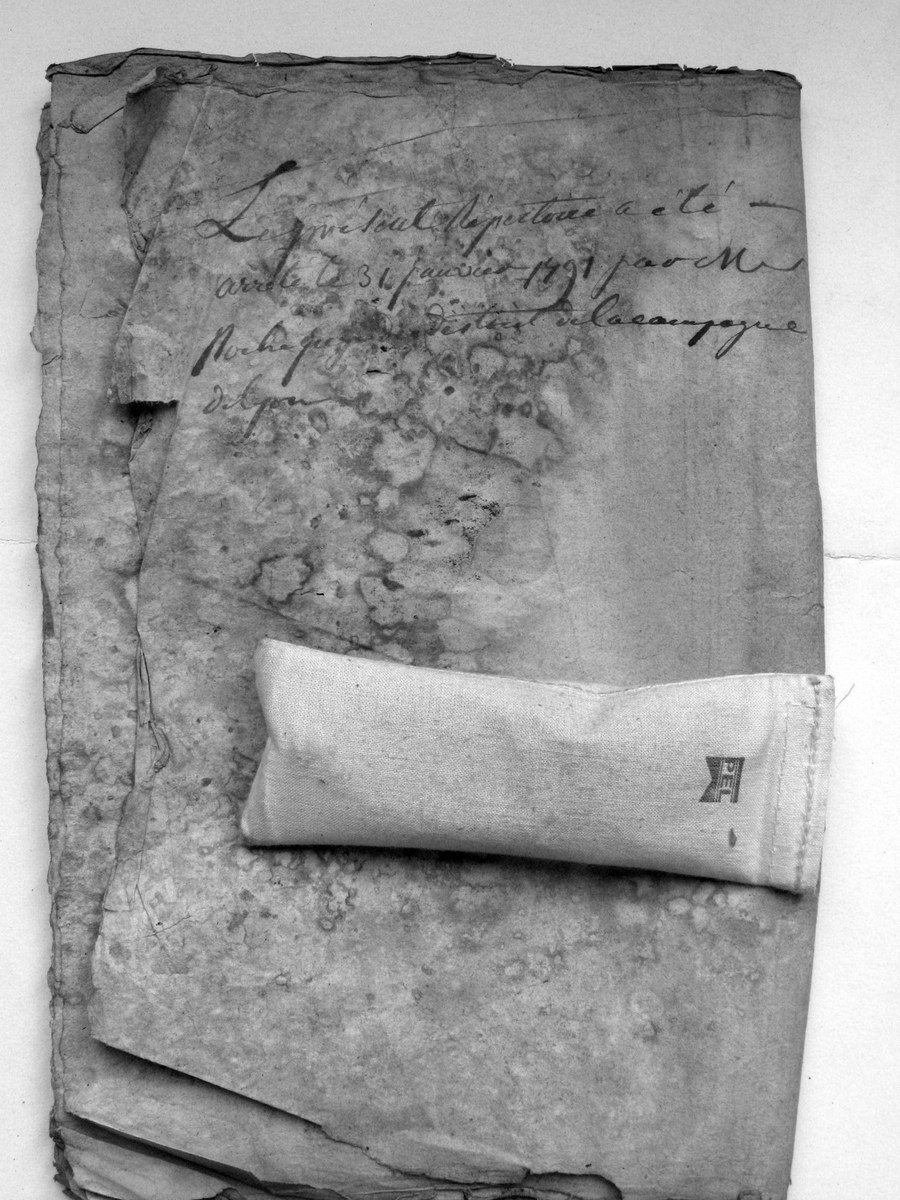 Le présent Répertoire a été —
arrêté le 31 janvier 1791 par Mr
district de la campagne
de lyon
PEL